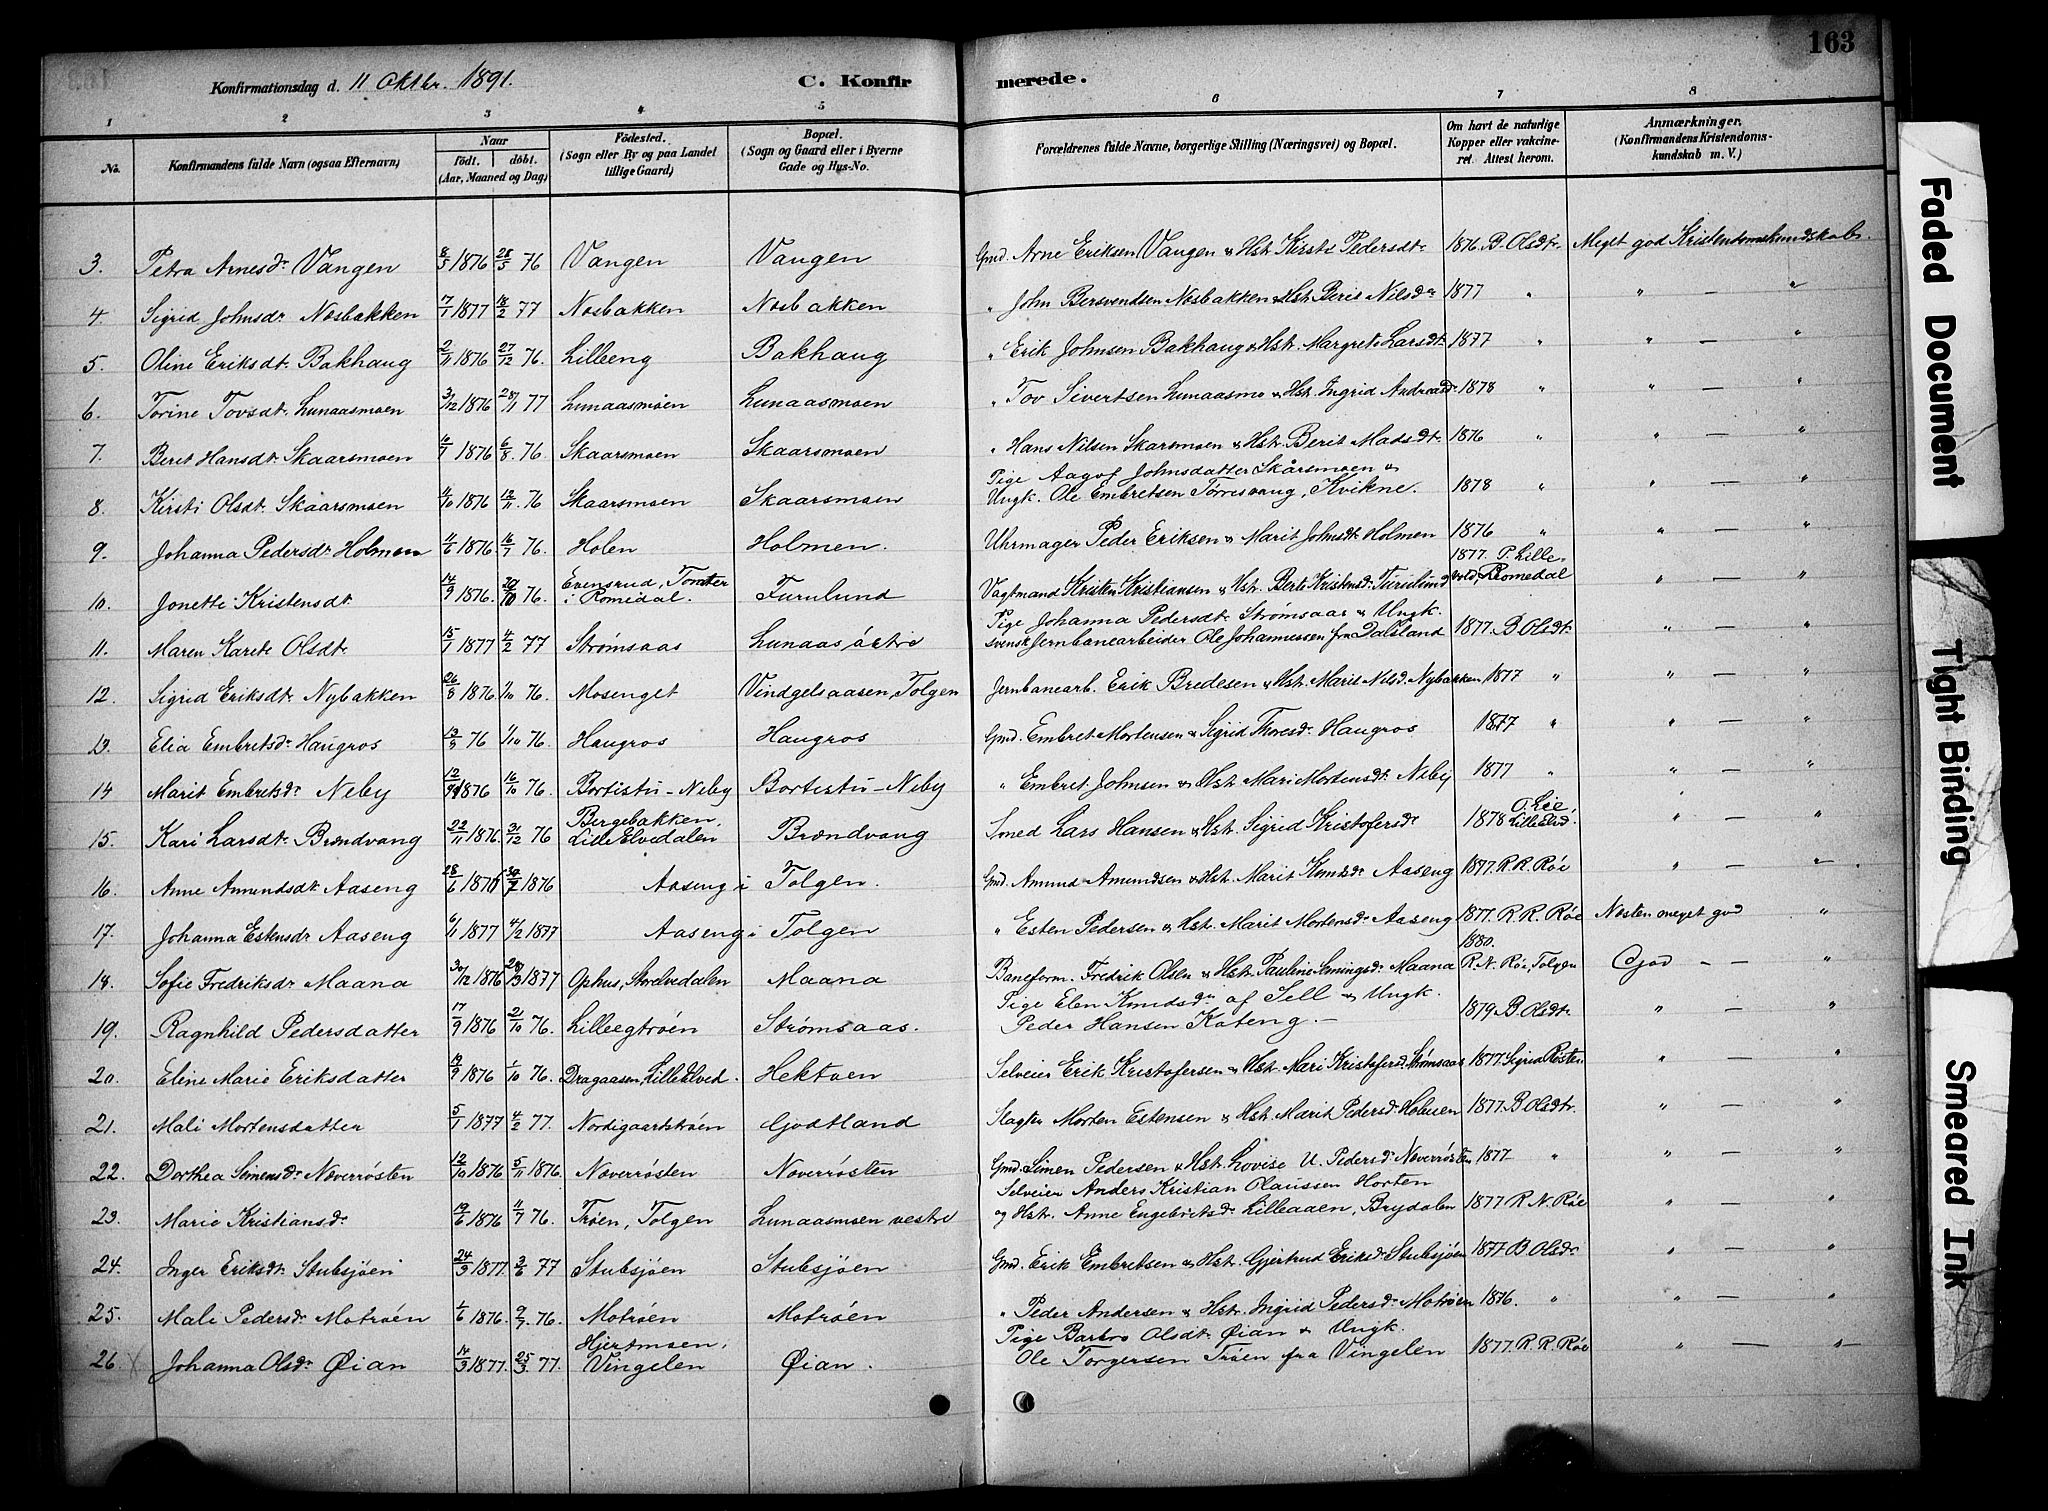 163
Konfirmationsdag d. 11 Oktbr. 1891.
C. Konfirmerede.
1 2 3 4 5 6 7 8
No. Konfirmandens fulde Navn (ogsaa Efternavn) Naar Født. døbt. (Aar, Maaned og Dag) Fødested. (Sogn eller By og paa Landet tillige Gaard) Bopæl. (Sogn og Gaard eller i Byerne Gade og Hus-No. Forældrenes fulde Navne, borgerlige Stilling (Næringsvei) og Bopæl. Om havt de naturlige Kopper eller vakcineret. Attest herom. Anmærkninger. (Konfirmandens Kristendomskundskab m. V.)
3. Petra Arnesdr Vangen 8/5 1876 28/5 76 Vangen Vangen Gmd. Arne Eriksen Vangen & Hst. Kirsti Pedersdt. 1876 B. Olsdt. Meget god Kristendomskundskab.
4. Sigrid Johnsdr Nosbakken 17/1 1877 18/2 77 Nosbakken Nosbakken " John Bersvendsen Nosbakken & Hst. Berit Nilsdr 1877 " " — "
5. Oline Eriksdt. Bakhaug 2/11 1876 27/12 76. Lilleeng Bakhaug " Erik Johnsen Bakhaug & Hst. Margrete Larsdt. 1877 " " — "
6. Torine Tovsdt. Lunaasmoen 3/12 1876 28/11 77 Lunaasmoen Lunaasmoen " Tov Sivertsen Lunaasmo & Hst. Ingrid Andreasdr. 1878 " " — "
7. Berit Hansdt. Skaarsmoen 10/7 1876 6/8 76 Skaarsmoen Skaarsmoen " Hans Nilsen Skarsmoen & Hst. Berit Madsdt. 1876 " " — "
8. Kirsti Olsdt. Skaarsmoen 11/10 1876 12/11 76 Skaarsmoen Skaarsmoen Pige Aagot Johnsdatter Skårsmoen & Ungk. Ole Embretsen Torresvang, Kvikne. 1878 " " — "
9. Johanna Pedersdr Holmen 11/6 1876 16/7 76. Holen Holmen. Uhrmager Peder Eriksen & Marit Johnsdt. Holmen 1876 " " — "
10. Jonette Kristensdt 14/9 1876. 20/10 76. Evensrud, Tomter i Romedal. Furulund Vagtmand Kristen Kristiansen & Hst. Berte Kristensdr. Furulund 1877. P. Lillevold, Romedal " — "
11. Maren Karete Olsdt. 15/1 1877 4/2 77 Strømsaas Lunaas østre Pige Johanna Pedersdt. Strømsaas & Ungk. svensk Jernbanearbeider Ole Johannessen fra Dalsland 1877. B Olsdt. " — "
12. Sigrid Eriksdt. Nybakken 26/8 1876. 1/10 76. Mosenget Vindgelsaasen, Tolgen Jernbanearb. Erik Bredesen & Hst. Marit Nilsd. Nybakken 1877 " " — "
13. Elia Embretsdr Haugros 13/9 76 1/10 76. Haugros Haugros Gmd. Embret Mortensen & Sigrid Thoresdr. Haugros 1877 " " — "
14 Marit Embretsdr Neby 12/9 1876 16/10 76. Bortistu-Neby Bortistu-Neby " Embret Johnsen & Hst. Mari Mortensdt. Neby 1877 " " — "
15. Kari Larsdt. Brandvang 22/11 1876. 31/12 76 Bergebakken, Lille Elvedalen Brandvang Soned Lars Hansen & Hst. Sigrid Kristofersdr 1878 O. Lie Lilleelvd. " — "
16. Anne Amundsdt. Aaseng 28/6 1876 30/7 1876 Aaseng i Tolgen. Gmd. Amund Amundsen & Hst. Marit Knutsdr Aaseng 1877. R. R. Røe " — " .
17. Johanna Estensdr Aaseng 6/1 1877 4/2 1877 Aaseng i Tolgen " Esten Pedersen & Hst. Marit Mortensdr. Aaseng 1877. R. R. Røe Næsten meget god "
18. Sofie Fredriksdr Maana 30/12 1876 28/3 1877 Ophus, Storelvedalen Maana Baneform. Fredrik Olsen & Hst. Pauline Semingsdr. Maana 1880. R. N. Røe, Tolgen God — — "
19. Ragnhild Pedersdatter 17/9 1876 21/10 76. Lilleegtrøen Strømsaas. Pige Elen Knudsdr af Sell & Ungk. Peder Hansen Koteng. — 1879 B. Olsdt. " — "
20. Eline Marie Eriksdatter 19/9 1876 1/10 76. Dragaasen, Lille Elved. Hektoen Selveier Erik Kristofersen & Hst. Mari Kristofersd. Strømsaas 1877. Sigrid Røsten " — "
21. Mali Mortensdatter 5/1 1877 4/2 77. Nordigaardstrøen Godtland Slagter Morten Estensen & Hst. Marit Pedersdr. Hobuen 1877. B Olsdtr. " — "
22. Dorthea Simensdr Noverrøsten 12/10 1876 5/11 1876. Noverrøsten Noverrøsten Gmd. Simen Pedersen & Hst. Lovise U. Pedersdr Noverrøsten 1877. " " — "
23. Marie Kristiansdr 19/6 1876 11/7 76. Trøen, Tolgen Lunaasmoen vestre Selveier Anders Kristian Olaussen Horten og Hst. Anne Engebretsdr Lilleaaen, Brydalen 1877 R. N. Røe " — "
24. Inger Eriksdt. Stubsjøen 24/3 1877. 3/6 77 Stubsjøen Stubsjøen Gmd. Erik Embretsen & Hst. Gjertrud Eriksdr Stubsjøen 1877 B. Olsdr " — "
25. Mali Pedersdr Motrøen 4/6 1876. 9/7 76. Motrøen Motrøen " Peder Andersen & Hst. Ingrid Pedersdr. Motrøen 1876. " " — "
26 X Johanna Olsdr Øian 14/3 1877. 25/3 77. Hjertmoen, Vingelen Øian. Pige Barbro Olsdt. Øian & Ungk. Ole Torgersen Trøen fra Vingelen 1877. R. R. Røe " — "
Faded Document
Tight Binding
Smeared Ink